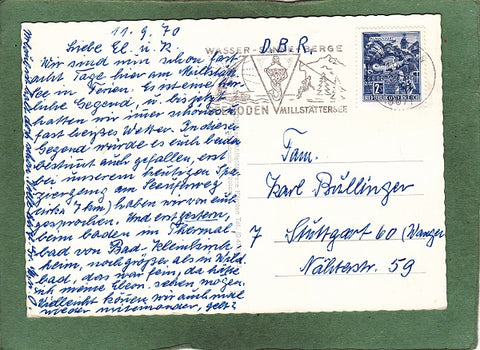 11.9.70
Liebe El. u. R.
Wir sind nun schon fast
acht Tage hier am Millstätter
See in Ferien. Es ist eine herr-
liche Gegend, u. bis jetzt
hatten wir immer schönes
fast heißes Wetter. In dieser
Gegend würde es euch beiden
bestimmt auch gefallen, erst
bei unserem heutigen Spa-
ziergang am Seeuferweg
(zirka 7 km) haben wir von euch
gesprochen. Und erst gestern,
beim baden im Thermal-
bad von Bad-Kleinkirch-
heim, noch größer als in Wild-
bad, das war fein, da hätte
ich meine Eleon. sehen mögen.
Vielleicht können wir auch mal
wieder miteinander, gelt?
D.B.R.
WASSER-SONNE-BERGE
SEEBODEN MILLSTÄTTERSEE
REPUBLIK ÖSTERREICH
Fam.
Karl Bullinger
7 Stuttgart 60 (Wangen
Nähterstr. 59